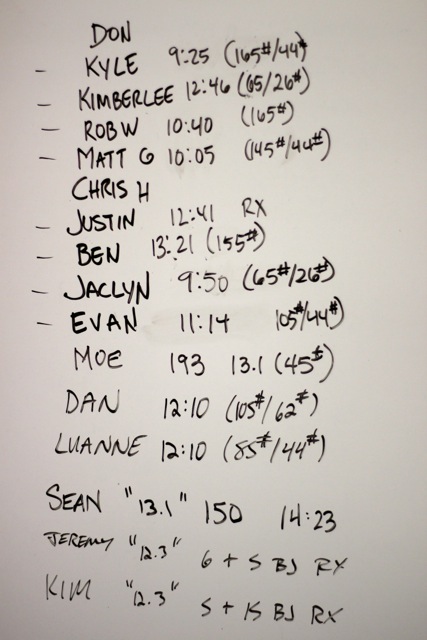 DON
- KYLE 9:25 (165#/44#
- KIMBERLEE 12:46 (65/26#)
- ROB W 10:40 (165#)
- MATT G 10:05 (145#/44#)
CHRIS H
- JUSTIN 12:41 RX
- BEN 13:21 (155#)
- JACLYN 9:50 (65#/26#)
- EVAN 11:14 105#/44#)
MOE 193 13.1 (45#)
DAN 12:10 (105#/62#)
LUANNE 12:10 (85#/44#)
SEAN "13.1" 150 14:23
JEREMY "12.3" 6 + 5 BJ RX
KIM "12.3" 5 + 15 BJ RX